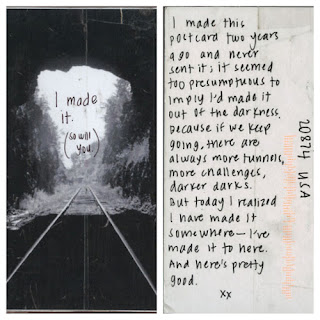 I made
it.
(so will
you.)
I made this
postcard two years
ago and never
sent it; it seemed
too presumptuous to
imply I'd made it
out of the darkness,
because if we keep
going, there are
always more tunnels,
more challenges,
darker darks.
But today I realized
I have made it
somewhere—I've
made it to here.
And here's pretty
good.
xx
20874 USA